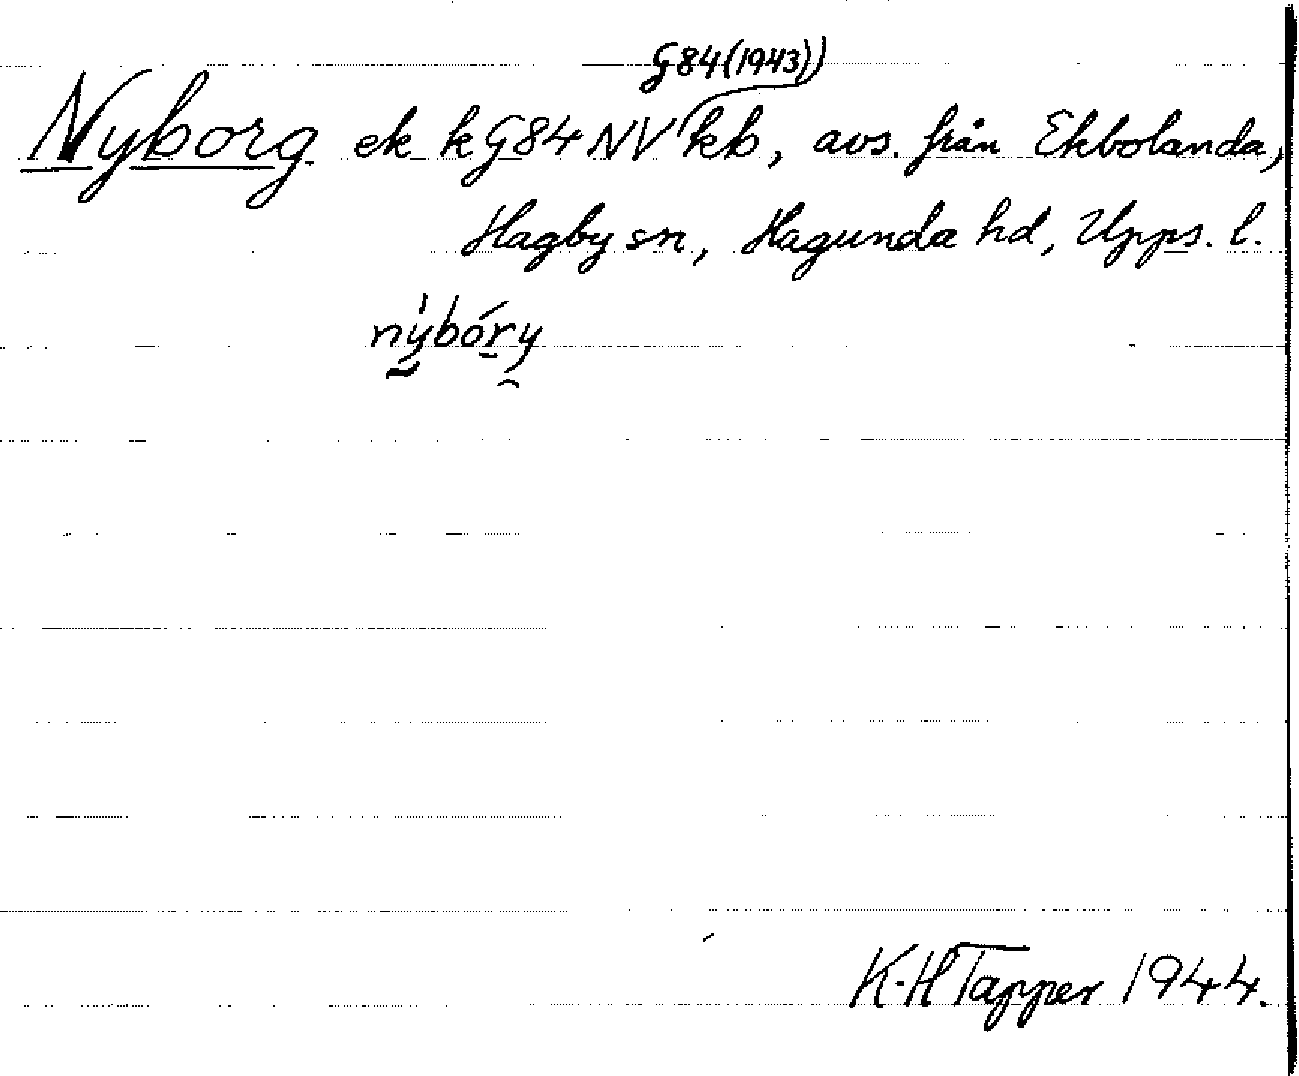 G84(1943))
Nyborg ek k G84 NV kb, avs. från Ekbolanda,
Hagby sn, Hagunda hd, Upps. l.
nýbóry
K-H Tapper 1944.